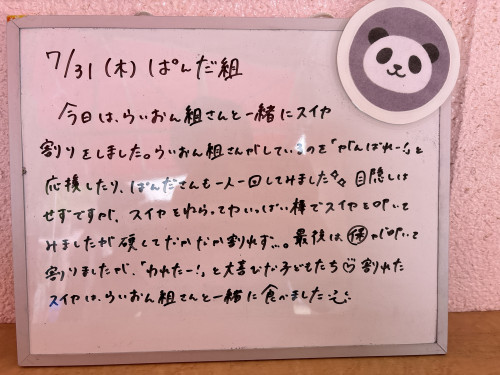 7/31(木)ぱんだ組
今日は、らいおん組さんと一緒にスイカ
割りをしました。らいおん組さんがしているのを「がんばれー!」と
応援したり、ぱんださんも一人一回してみました✧ 目隠しは
せずですが、スイカをねらっていっぱい棒でスイカを叩いて
みましたが硬くてなかなか割れず…。最後は、㊩が叩いて
割りましたが、「われたー!」と大喜びな子どもたち♡割れた
スイカは、らいおん組さんと一緒に食べました